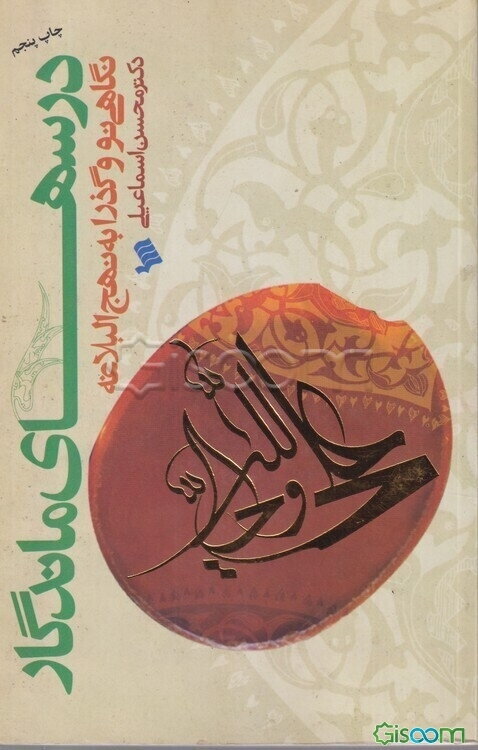 چاپ پنجم
درسهای ماندگار
نگاهی نو و گذرا به نهج البلاغه
دکتر محسن اسماعیلی
علی ولی الله
Gisoom
Gisoom